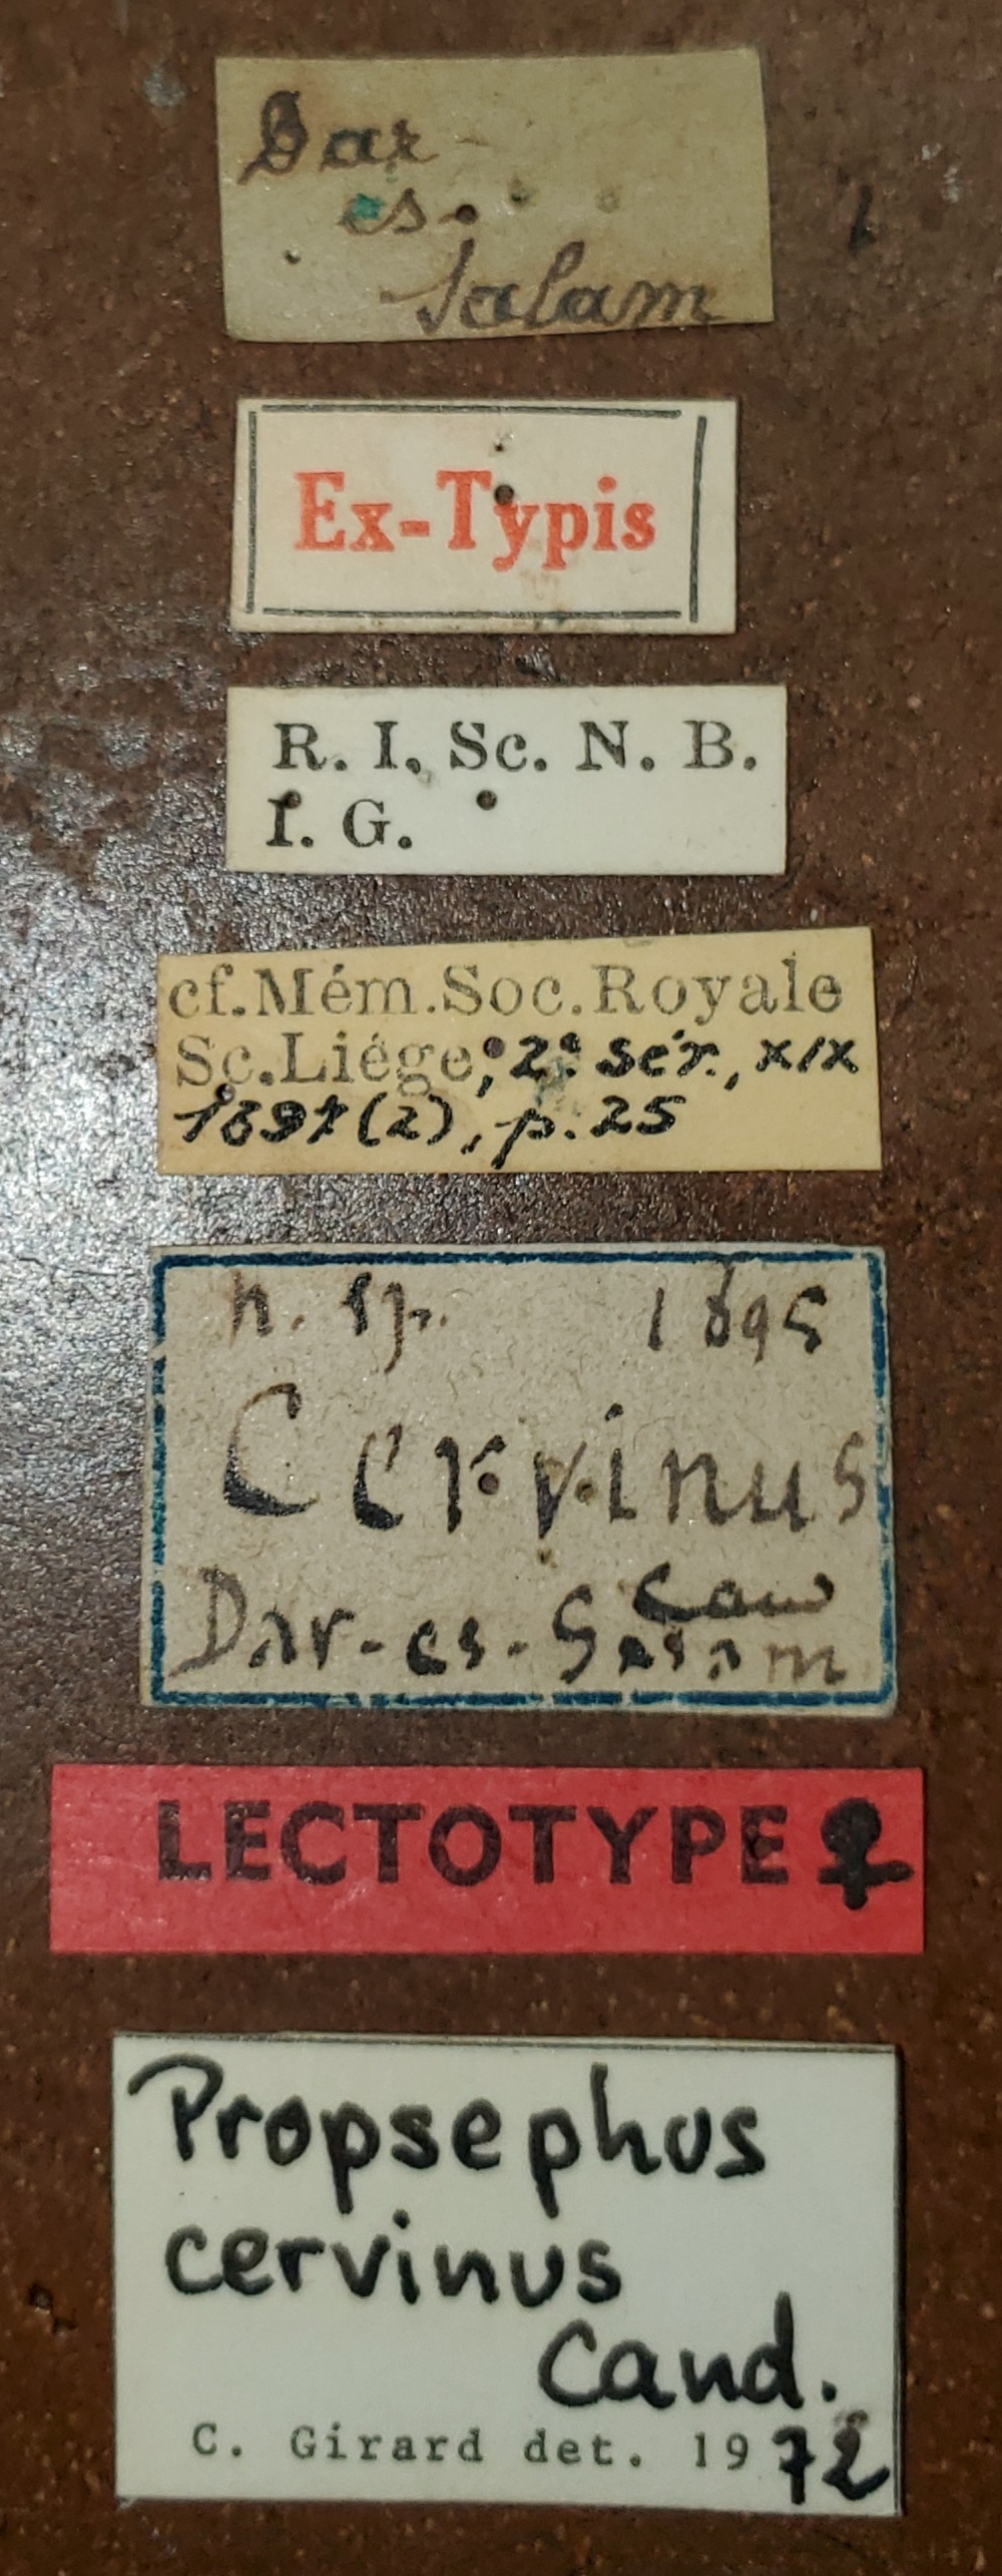 Dar
es.
Salam
Ex-Typis
R. I. Sc. N. B.
I. G.
cf.Mém.Soc.Royale
Sc.Liége, 2e sér., XIX
(2), p. 25
n. sp. 1895
Cervinus
Cand
Dar-es-Salam
LECTOTYPE ♀
Propsephus
cervinus
Cand.
C. Girard det. 1972